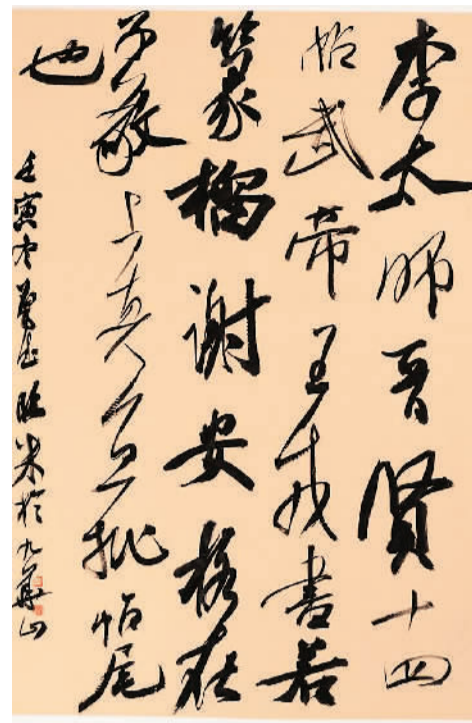 李太师晋贤十四
帖武帝王戎書若
篆籀谢安格在
子敬上真宜批帖尾
也
壬寅冬臨米於九華山